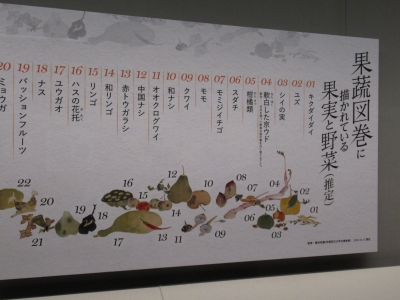 果蔬図巻に
描かれている
果実と野菜(推定)
01 キクダイダイ
02 ユズ
03 シイの実
04 軟白した京ウド
05 柑橘類
06 スダチ
07 モミジイチゴ
08 モモ
09 クワイ
10 和ナシ
11 オオクログワイ
12 中国ナシ
13 赤トウガラシ
14 和リンゴ
15 リンゴ
16 ハスの花托
17 ユウガオ
18 ナス
19 パッションフルーツ
20 ミョウガ
22
20
21
19
18
17
16
15
14
13
12
11
10
09
08
07
07
06
05
04
03
02
02
01